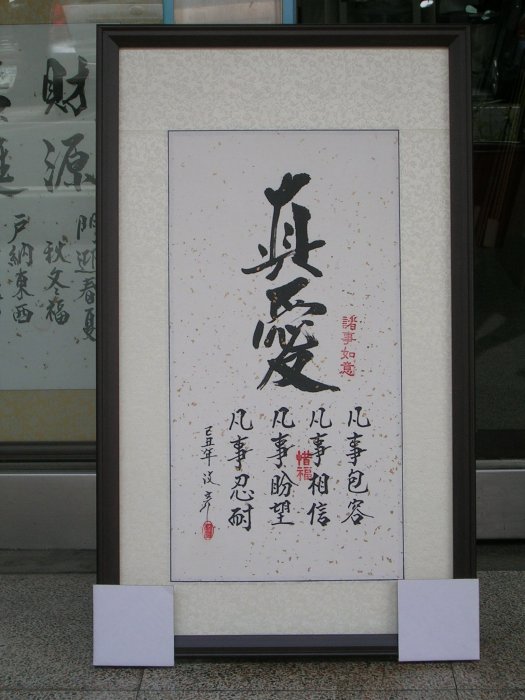 真愛
諸事如意
凡事包容
凡事相信
惜福
凡事盼望
凡事忍耐
己丑年
財源
門迎春夏
秋冬福
戶納東西